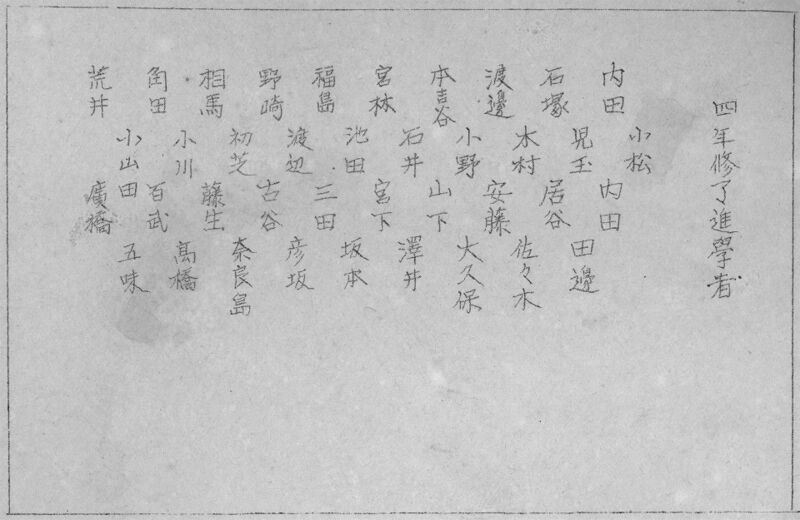 四年修了進學者
小松
内田 内田
児玉 田邊
石塚 居谷
木村 佐々木
渡邊 安藤
小野 大久保
本吉谷 山下
石井 澤井
宮林 宮下
池田 坂本
福島 三田
渡辺 彦坂
野崎 古谷
初芝 奈良島
相馬 藤生
小川 高橋
角田 百武
小山田 五味
荒井 廣橋